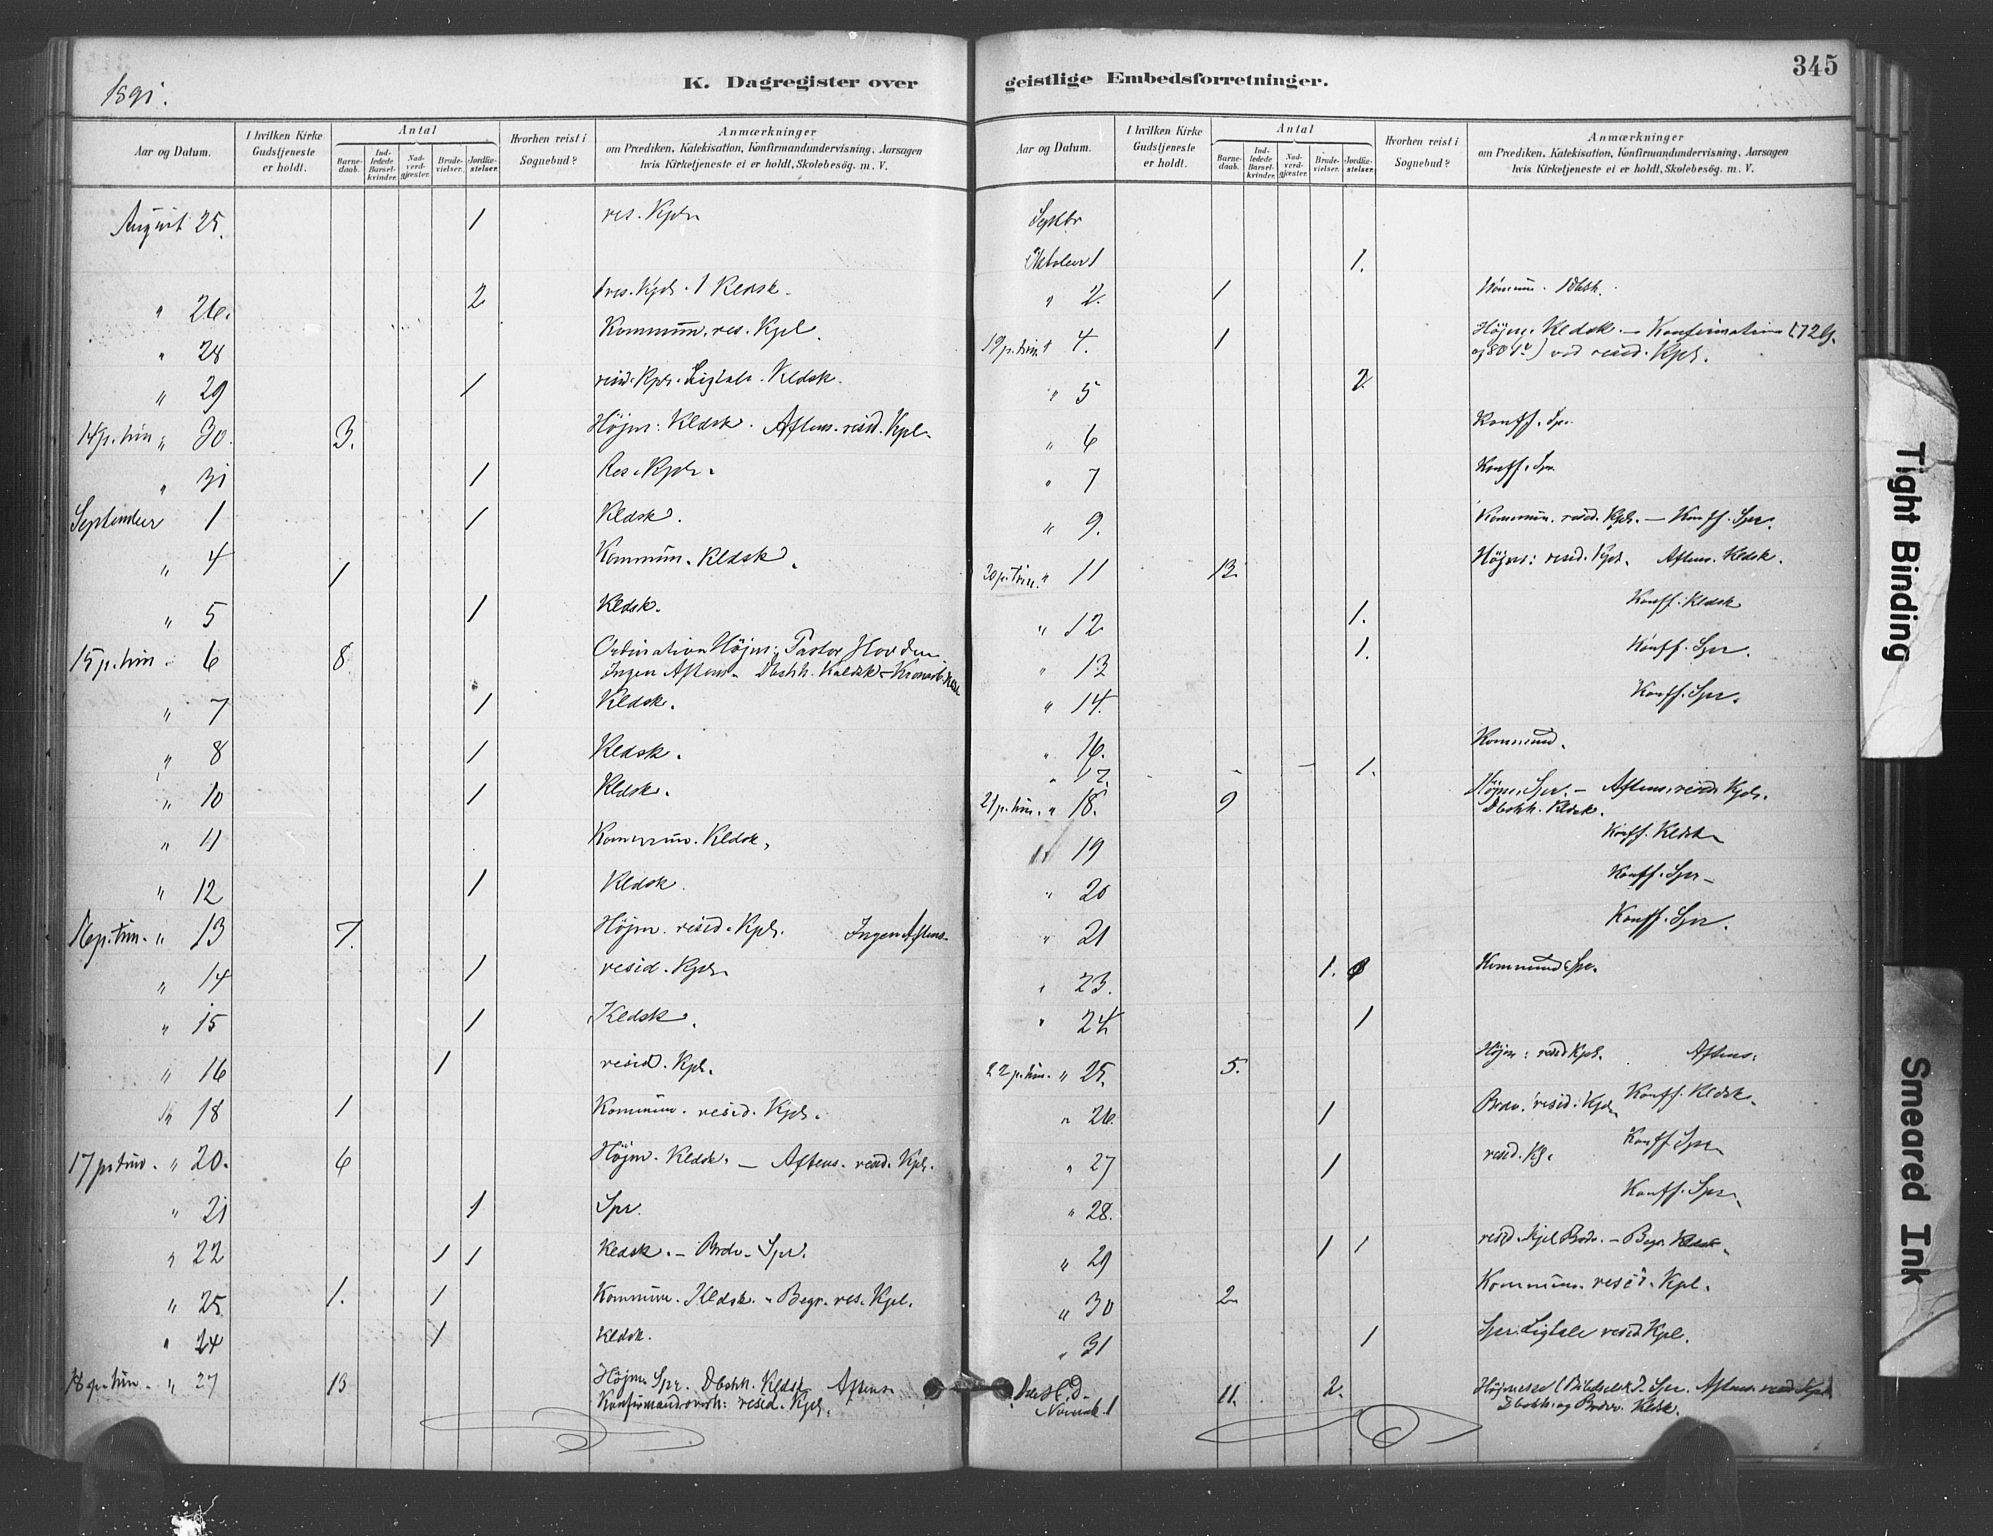 1891.
K. Dagregister over
Aar og Datum.
I hvilken Kirke Gudstjeneste er holdt.
Antal
Barnedaab.
Indledede Barselkvinder.
Nadverdgjæster.
Brudevielser.
Jordfæstelser.
Hvorhen reist i Sognebud?
Anmærkninger
om Prædiken, Katekisation, Konfirmandundervisning, Aarsagen
hvis Kirketjeneste ei er holdt, Skolebesøg. m. V.
August 25. 1 res. Kpl.
" 26. 2 1 res. Kpl. 1 Kldsk.
" 28 Kommun. res. Kpl.
" 29 1 resid. Kpl. Ligtale. Kldsk.
14 p. trin " 30. 3. Höjm: Kldsk. Aftens. resid. Kpl.
" 31 1 Res. Kpl.
September 1 1 Kldsk.
" 4 1 Kommun. Kldsk.
" 5 1 Kldsk.
15 p. trin " 6 8 Ordination Höjm: Pastor Hovden
Ingen Aftens. Dbshh. Kldsk
" 7 1 Kldsk.
" 8 1 Kldsk.
" 10 1 Kldsk.
" 11 Kommun. Kldsk.
" 12 1 Kldsk.
16 p. trin. " 13 7. Höjm. resid. Kpl. Ingen Aftens.
" 14 1 resid. Kpl.
" 15 1 Kldsk.
" 16 1 resid. Kpl.
" 18 1 Kommun. resid. Kpl.
17 p. trin. " 20. 6 Höjm. Kldsk. — Aftens. resid. Kpl.
" 21 1 Spr.
" 22 1 1 Kldsk. — Brdv. Spr.
" 25 1. 1 Kommun. Kldsk. - Begr. res. Kpl.
" 24 1 Kldsk.
18 p. trin. " 27 13 Höjm. Spr. Dbshh. Kldsk Aftens
resid. Kpl.
geistlige Embedsforretninger.
345
Aar og Datum.
I hvilken Kirke Gudstjeneste er holdt.
Antal
Barnedaab.
Indledede Barselkvinder.
Nadverdgjæster.
Brudevielser.
Jordfæstelser.
Hvorhen reist i Sognebud?
Anmærkninger
om Prædiken, Katekisation, Konfirmandundervisning, Aarsagen
hvis Kirketjeneste ei er holdt, Skolebesøg. m. V.
Septbr
Oktober 1 1.
" 2. 1
19 p. trin " 4. 1 Höjm. Kldsk. — Konfirmation (72 G.
og 80 P.) ved resid. Kpl.
" 5 2
" 6 Konff. Spr.
" 7 Konff. Spr.
" 9. Kommun. resid. Kpl. — Konff. Spr.
20 p. trin. " 11 12. Höjm: resid. Kpl. Aftens. Kldsk.
" 12 1. Konff. Kldsk
" 13 1. Konff. Spr.
" 14. Konff. Spr.
" 16. Kommun.
" 17. 1.
21 p. trin. " 18. 9 Höjm. Spr. — Aftens. resid. Kpl.
Dbshh. Kldsk.
" 19 Konff. Kldsk
" 20 Konff. Spr
" 21 Konff. Spr.
" 23. 1. Kommun. Spr.
" 24 1
22 p. trin. " 25. 5. Höjm: resid Kpl. Aftens:
" 26. 1 Brdv. resid. Kpl. Konff. Kldsk.
" 27 1 resid. Kp. Konff Spr.
" 28. Konff. Spr.
" 29 1 1 resid. Kpl Brdv. — Begr. Kldsk.
" 30 2 Kommun. resid. Kpl.
" 31 1 Spr. Ligtale resid Kpl.
Novemb. 1 11. 2. Höjmesse Spr. Aftens. resid Kpl
Dbshh. og Brdv. Kldsk.
Tight Binding
Smeared Ink